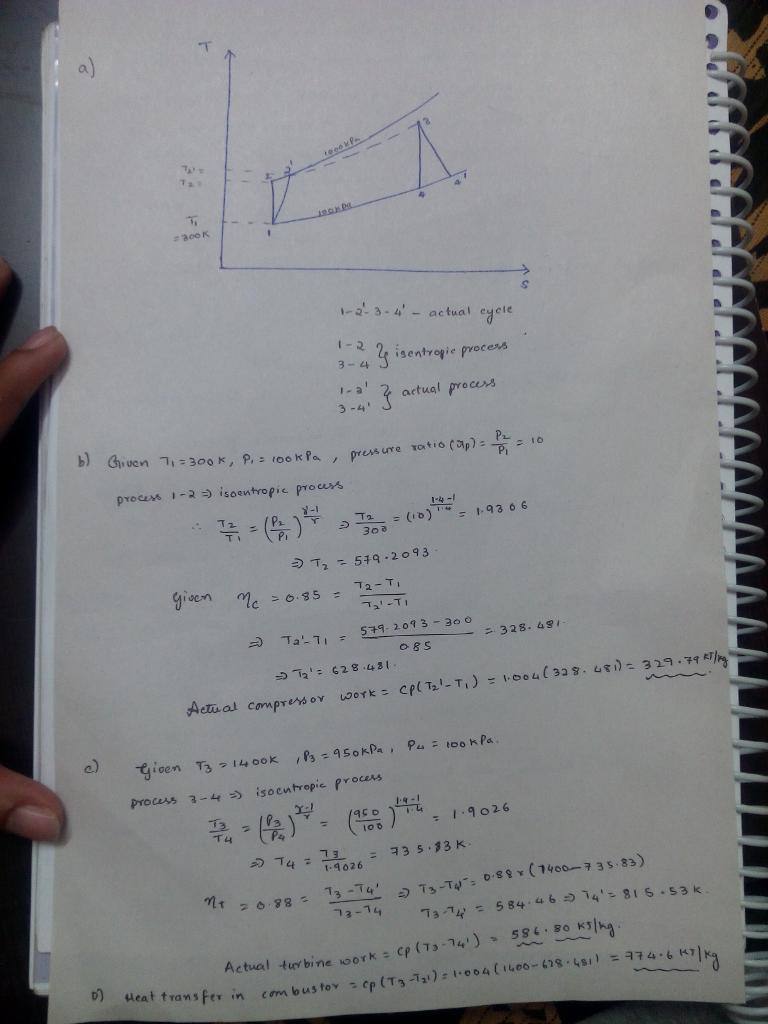 a)
T
1000 kPa
2 2' 3
T2' =
T2 =
T1
= 300K
100 kPa
1 4 4'
S
1-2'-3-4' - actual cycle
1-2
3-4 } isentropic process
1-2'
3-4' } actual process
b) Given T1 = 300K, P1 = 100kPa, pressure ratio (rp) = P2/P1 = 10
process 1-2 ⇒ isoentropic process
∴ T2/T1 = (P2/P1)^((γ-1)/γ) ⇒ T2/300 = (10)^((1.4-1)/1.4) = 1.9306
⇒ T2 = 579.2093.
Given ηc = 0.85 = (T2-T1)/(T2'-T1)
⇒ T2'-T1 = (579.2093-300)/0.85 = 328.481.
⇒ T2' = 628.481.
Actual compressor work = cp(T2'-T1) = 1.004(328.481) = 329.79 KJ/kg
c) Given T3 = 1400K, P3 = 950kPa, P4 = 100kPa.
process 3-4 ⇒ isoentropic process
T3/T4 = (P3/P4)^((γ-1)/γ) = (950/100)^((1.4-1)/1.4) = 1.9026
⇒ T4 = T3/1.9026 = 735.83K.
ηT = 0.88 = (T3-T4')/(T3-T4) ⇒ T3-T4' = 0.88x(1400-735.83)
T3-T4' = 584.46 ⇒ T4' = 815.53K.
Actual turbine work = cp(T3-T4') = 586.80 KJ/kg.
D) Heat transfer in combustor = cp(T3-T2') = 1.004(1400-628.481) = 774.6 KJ/kg